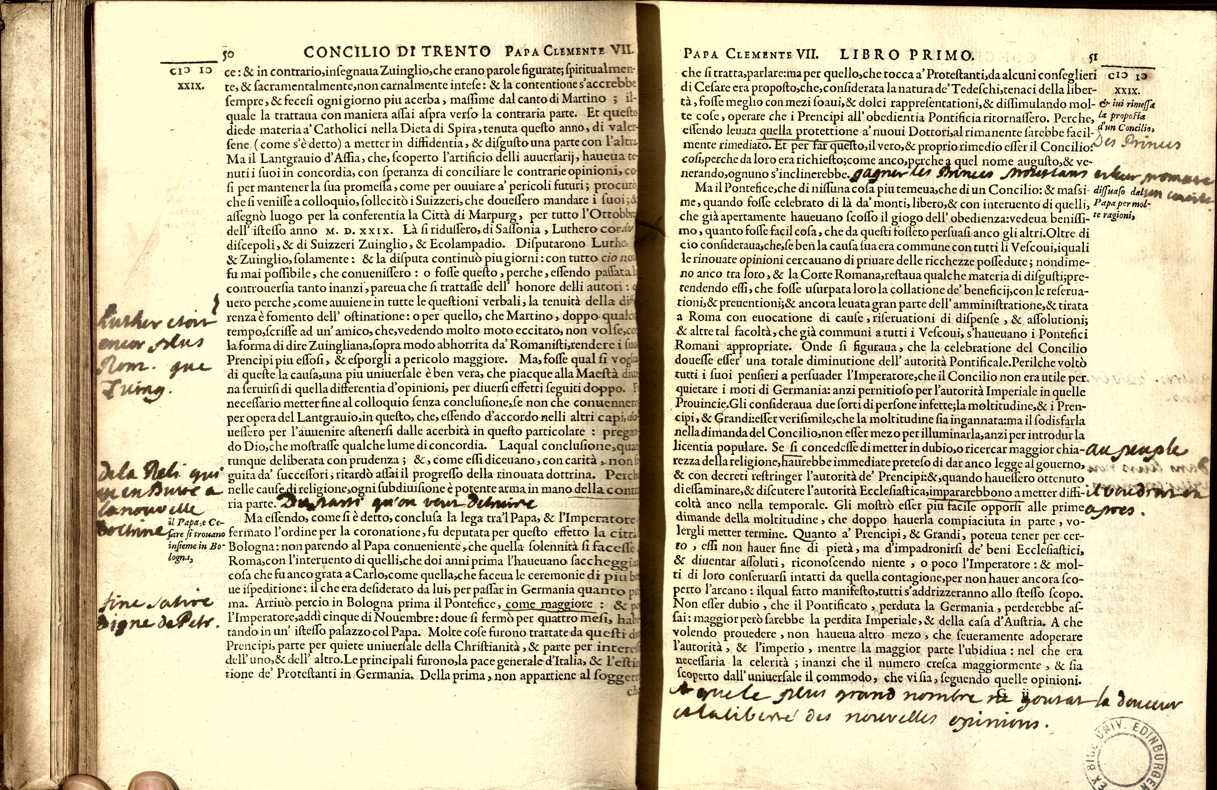 50 CONCILIO DI TRENTO PAPA CLEMENTE VII.
CIƆ IƆ
XXIX.
ce: & in contrario, insegnaua Zuinglio, che erano parole figurate; spiritualmen-
te, & sacramentalmente, non carnalmente intese: & la contentione s'accrebbe
sempre, & fecesi ogni giorno piu acerba, massime dal canto di Martino; il-
quale la trattaua con maniera assai aspra verso la contraria parte. Et questo
diede materia a' Catholici nella Dieta di Spira, tenuta questo anno, di valer-
sene (come s'è detto) a metter in diffidentia, & disgusto una parte con l'altra.
Ma il Lantgrauio d'Assia, che, scoperto l'artificio delli auuersarij, haueua te-
nuti i suoi in concordia, con speranza di conciliare le contrarie opinioni, co-
si per mantener la sua promessa, come per ouuiare a' pericoli futuri; procurò,
che si venisse a colloquio, sollecitò i Suizzeri, che douessero mandare i suoi; &
assegnò luogo per la conferentia la Città di Marpurg, per tutto l'Ottobre
dell'istesso anno M. D. XXIX. Là si ridussero, di Sassonia, Luthero con
discepoli, & di Suizzeri Zuinglio, & Ecolampadio. Disputarono Luthero
& Zuinglio, solamente: & la disputa continuò piu giorni: con tutto cio non
fu mai possibile, che conuenissero: o fosse questo, perche, essendo passata la
controuersia tanto inanzi, pareua che si trattasse dell'honore delli autori: o
uero perche, come auuiene in tutte le questioni verbali, la tenuità della diffe-
renza è fomento dell'ostinatione: o per quello, che Martino, doppo qualche
tempo, scrisse ad un'amico, che, vedendo molto moto eccitato, non volse, con
la forma di dire Zuingliana, sopra modo abhorrita da' Romanisti, rendere i suoi
Prencipi piu essosi, & esporgli a pericolo maggiore. Ma, fosse qual si voglia
di queste la causa, una piu uniuersale è ben vera, che piacque alla Maestà diui-
na seruirsi di quella differentia d'opinioni, per diuersi effetti seguiti doppo. Fu
necessario metter fine al colloquio senza conclusione, se non che conuennero
per opera del Lantgrauio, in questo, che, essendo d'accordo nelli altri capi, do-
uessero per l'auuenire astenersi dalle acerbità in questo particolare: pregan-
do Dio, che mostrasse qualche lume di concordia. Laqual conclusione, quan-
tunque deliberata con prudenza; &, come essi diceuano, con carità, non se-
guita da' successori; ritardò assai il progresso della rinouata dottrina. Perche
nelle cause di religione, ogni subdiuisione è potente arma in mano della contra-
ria parte.
Ma essendo, come si è detto, conclusa la lega tra'l Papa, & l'Imperatore
fermato l'ordine per la coronatione, fu deputata per questo effetto la città
Bologna: non parendo al Papa conueniente, che quella solennità si facesse
Roma, con l'interuento di quelli, che doi anni prima l'haueuano saccheggiata
cosa che fu anco grata a Carlo, come quella, che faceua le ceremonie di piu bre-
ue ispeditione: il che era desiderato da lui, per passar in Germania quanto pri-
ma. Arriuò percio in Bologna prima il Pontefice, come maggiore: & poi
l'Imperatore, addi cinque di Nouembre: doue si fermò per quattro mesi, habi-
tando in un'istesso palazzo col Papa. Molte cose furono trattate da questi due
Prencipi, parte per quiete uniuersale della Christianità, & parte per interesse
dell'uno, & dell'altro. Le principali furono, la pace generale d'Italia, & l'estir-
tione de' Protestanti in Germania. Della prima, non appartiene al soggetto
che
Luther
encor plus
Rom. que
Zuing.
De la Reli qui
la nouvelle
doctrine
il Papa, e Ce-
sare si trouano
insieme in Bo-
logna,
digne de Petr.
PAPA CLEMENTE VII. LIBRO PRIMO. 51
CIƆ IƆ
XXIX.
che si tratta, parlare: ma per quello, che tocca a' Protestanti, da alcuni conseglieri
di Cesare era proposto, che, considerata la natura de' Tedeschi, tenaci della liber-
tà, fosse meglio con mezi soaui, & dolci rappresentationi, & dissimulando mol-
te cose, operare che i Prencipi all'obedientia Pontificia ritornassero. Perche,
essendo leuata quella protettione a' nuoui Dottori, al rimanente sarebbe facil-
mente rimediato. Et per far questo, il vero, & proprio rimedio esser il Concilio:
cosi, perche da loro era richiesto; come anco, perche a quel nome augusto, & ve-
nerando, ognuno s'inclinerebbe.
Ma il Pontefice, che di nissuna cosa piu temeua, che di un Concilio: & massi-
me, quando fosse celebrato di là da' monti, libero, & con interuento di quelli,
che già apertamente haueuano scosso il giogo dell'obedienza: vedeua benissi-
mo, quanto fosse facil cosa, che da questi fossero persuasi anco gli altri. Oltre di
cio consideraua, che, se ben la causa sua era commune con tutti li Vescoui, iquali
le rinouate opinioni cercauano di priuare delle ricchezze possedute; nondime-
no anco tra loro, & la Corte Romana, restaua qualche materia di disgusti; pre-
tendendo essi, che fosse usurpata loro la collatione de' beneficij, con le reserua-
tioni, & preuentioni; & ancora leuata gran parte dell'amministratione, & tirata
a Roma con euocatione di cause, riseruationi di dispense, & assolutioni;
& altre tal facoltà, che già communi a tutti i Vescoui, s'haueuano i Pontefici
Romani appropriate. Onde si figuraua, che la celebratione del Concilio
douesse esser' una totale diminutione dell'autorità Pontificale. Perilche voltò
tutti i suoi pensieri a persuader l'Imperatore, che il Concilio non era utile per
quietare i moti di Germania: anzi pernitioso per l'autorità Imperiale in quelle
Prouincie. Gli consideraua due sorti di persone infette; la moltitudine, & i Pren-
cipi, & Grandi: esser verisimile, che la moltitudine sia ingannata: ma il sodisfarla
nella dimanda del Concilio, non esser mezo per illuminarla, anzi per introdur la
licentia populare. Se si concedesse di metter in dubio, o ricercar maggior chia-
rezza della religione, haurebbe immediate preteso di dar anco legge al gouerno,
& con decreti restringer l'autorità de' Prencipi: &, quando hauessero ottenuto
di essaminare, & discutere l'autorità Ecclesiastica, impararebbono a metter diffi-
coltà anco nella temporale. Gli mostrò esser piu facile opporsi alle prime
dimande della moltitudine, che doppo hauerla compiaciuta in parte, vo-
lergli metter termine. Quanto a' Prencipi, & Grandi, poteua tener per cer-
to, essi non hauer fine di pietà, ma d'impadronirsi de' beni Ecclesiastici,
& diuentar assoluti, riconoscendo niente, o poco l'Imperatore: & mol-
ti di loro conseruarsi intatti da quella contagione, per non hauer ancora sco-
perto l'arcano: ilqual fatto manifesto, tutti s'addrizzeranno allo stesso scopo.
Non esser dubio, che il Pontificato, perduta la Germania, perderebbe as-
sai: maggior però sarebbe la perdita Imperiale, & della casa d'Austria. A che
volendo prouedere, non haueua altro mezo, che seueramente adoperare
l'autorità, & l'imperio, mentre la maggior parte l'ubidiua: nel che era
necessaria la celerità; inanzi che il numero cresca maggiormente, & sia
scoperto dall'uniuersale il commodo, che vi sia, seguendo quelle opinioni.
& iui rimessa
la proposta
d'un Concilio,
Des Princes
gagner les Princes
dissuaso dal
Papa per mol-
te ragioni,
au peuple
apres.
que le plus grand nombre ne goutat la douceur
et la liberté des nouvelles opinions.
UNIV. EDINBURGEN
EX BIBL